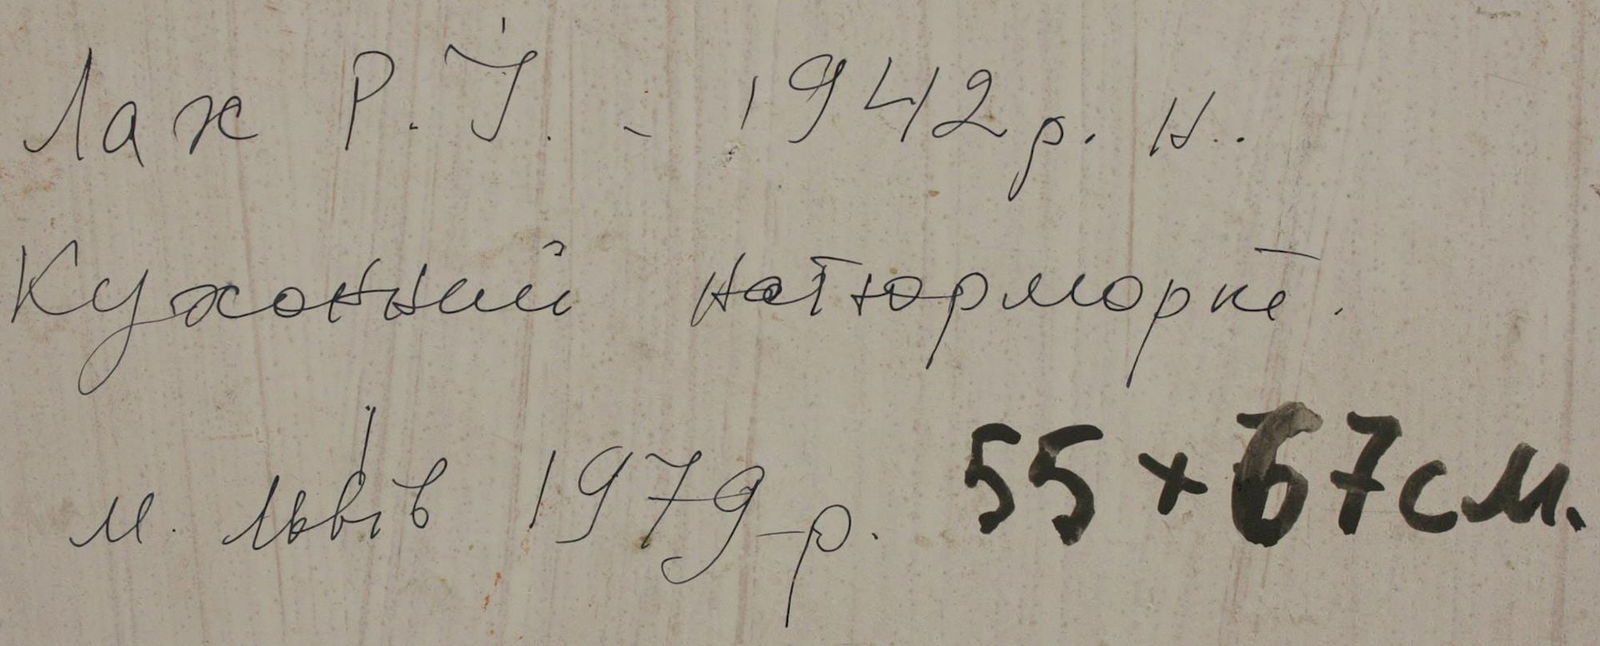 Лах Р. Й. - 1942 р. н.
Кухонний натюрморт.
м. Львів 1979 р. 55 х 67 см.